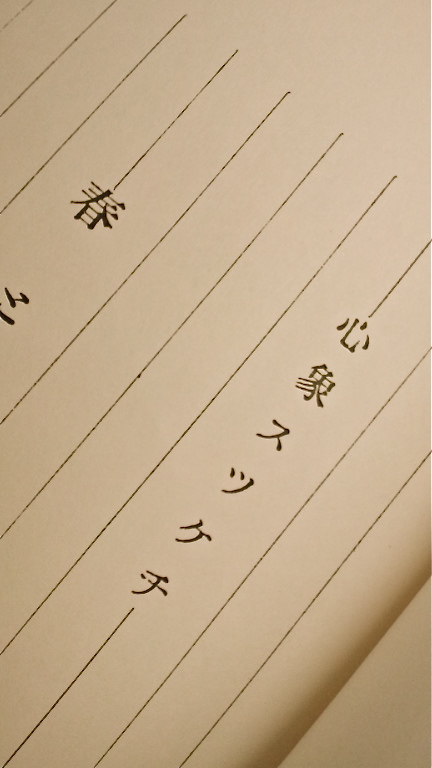 心象スツケチ
春